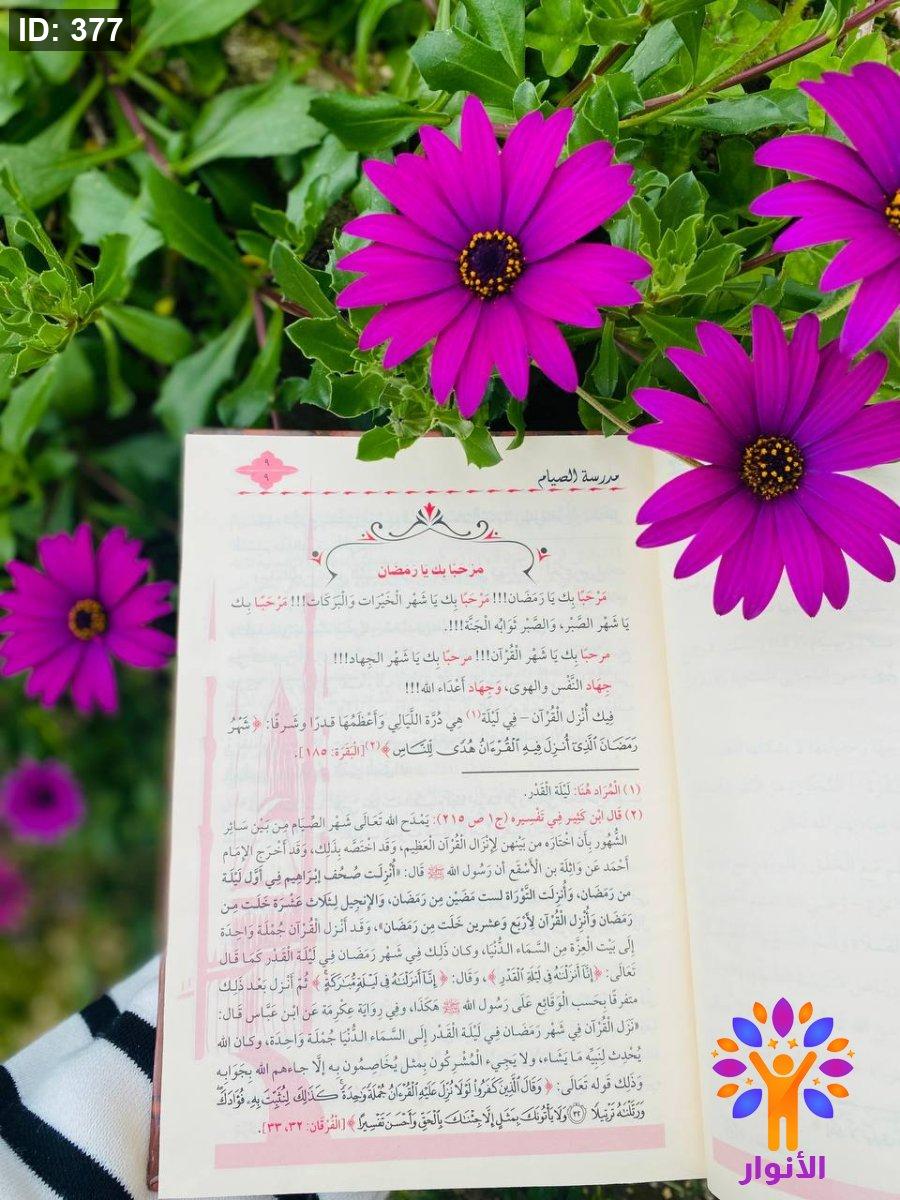 ID: 377
مدرسة الصيام
٩
٩
مَرْحَبًا بك يا رمَضَان
مَرْحَبًا بِك يَا رَمَضَان!!! مَرْحَبًا بِك يَا شَهْر الْخَيْرَات وَالْبَرَكَات!!! مَرْحَبًا بِك
يَا شَهْر الصَّبْر، وَالصَّبْر ثَوَابُه الْجَنَّة!!!.
مرحبًا بِك يَا شَهْر الْقُرْآن!!! مرحبًا بِك يَا شَهْر الجِهاد!!!
جِهَاد النَّفْس والهوى، وَجِهَاد أَعْدَاء الله!!!
فِيك أُنْزِل الْقُرْآن – فِي لَيْلَة(١) هِي دُرَّة اللَّيَالِي وَأَعْظَمُهَا قدرًا وشَرفًا: ﴿ شَهْرُ
رَمَضَانَ الَّذِىٓ أُنزِلَ فِيهِ الْقُرْءَانُ هُدًى لِّلنَّاسِ ﴾(٢)[الْبَقَرَة: ١٨٥].
(١) الْمُرَاد هُنَا: لَيْلَة الْقَدْر.
(٢) قَال ابْن كَثِير فِي تَفْسِيره (ج١ ص ٢١٥): يَمْدَح الله تَعَالَى شَهْر الصِّيَام مِن بَيْن سَائِر
الشُّهُور بِأَن اخْتَارَه مِن بَيْنهن لِإِنْزَال الْقُرْآن الْعَظِيم، وَقَد اخْتَصَّه بِذَلِك، وَقَد أَخْرَج الإِمَام
أَحْمَد عَن وَاثِلَة بن الأَسْقَع أن رَسُول الله ﷺ قَال: «أُنْزِلَت صُحُف إِبْرَاهِيم فِي أَوَّل لَيْلَة
من رَمَضَان، وَأُنْزِلَت التَّوْرَاة لست مَضَيْن مِن رَمَضَان، وَالإِنْجِيل لِثَلاث عَشْرَة خَلَت مِن
رَمَضَان وَأُنْزِل الْقُرْآن لِأَرْبَع وَعشرين خَلَت مِن رَمَضَان»، وَقَد أَنْزل الْقُرْآن جُمْلَة وَاحِدَة
إِلَى بَيْت الْعِزَّة مِن السَّمَاء الدُّنْيَا، وَكان ذَلِك فِي شَهْر رَمَضَان فِي لَيْلَة الْقَدْر كَمَا قَال
تَعَالَى: ﴿إِنَّآ أَنزَلْنَٰهُ فِى لَيْلَةِ الْقَدْرِ ﴾، وَقَال: ﴿ إِنَّآ أَنزَلْنَٰهُ فِى لَيْلَةٍ مُّبَٰرَكَةٍ ﴾ ثُمَّ أُنْزل بَعْد ذَلِك
متفرقًا بِحَسب الْوَقَائِع عَلَى رَسُول الله ﷺ هَكَذَا، وفي رِوَايَة عِكْرِمَة عَن ابْن عَبَّاس قَال:
«نَزَل الْقُرْآن فِي شَهْر رَمَضَان فِي لَيْلَة الْقَدْر إِلَى السَّمَاء الدُّنْيَا جُمْلَة وَاحِدَة، وَكَان الله
يُحْدِث لِنَبِيِّه مَا يَشَاء، ولا يَجِيء الْمُشْرِكُون بِمثل يُخَاصِمُون بِه إِلَّا جاءهم الله بِجَوابِه
وَذَلِك قَوله تَعَالَى: ﴿ وَقَالَ الَّذِينَ كَفَرُوا۟ لَوْلَا نُزِّلَ عَلَيْهِ الْقُرْءَانُ جُمْلَةً وَٰحِدَةً ۚ كَذَٰلِكَ لِنُثَبِّتَ بِهِۦ فُؤَادَكَ ۖ
وَرَتَّلْنَٰهُ تَرْتِيلًا ﴿٣٢﴾ وَلَا يَأْتُونَكَ بِمَثَلٍ إِلَّا جِئْنَٰكَ بِالْحَقِّ وَأَحْسَنَ تَفْسِيرًا ﴾ [الْفُرْقَان: ٣٢، ٣٣].
الأنوار